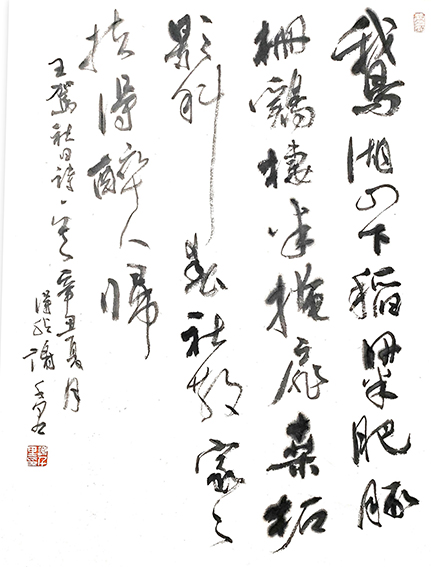 鹅湖山下稻粱肥豚
栅鷄棲半掩扉桑柘
影斜春社散家々
扶得醉人歸
王驾社日詩一首辛丑夏月